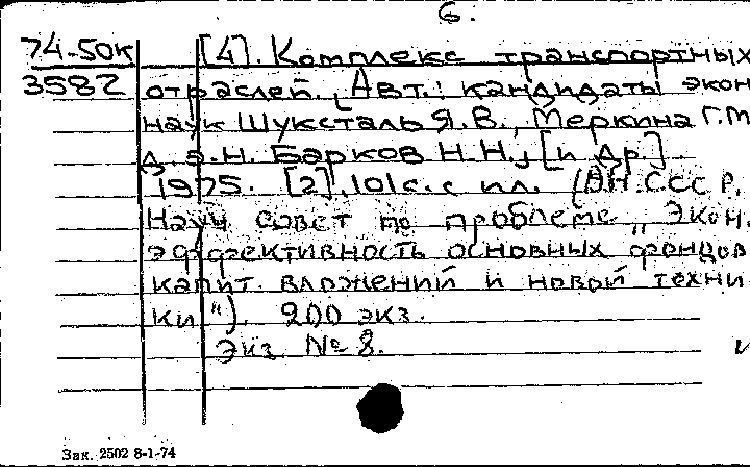 6.
74-50к [4]. Комплекс транспортных
3582 отраслей. Авт.: кандидаты экон
наук Шуксталь Я.В., Меркина Г.М
д.э.н. Барков Н.Н., [и др.]
1975. [2], 101 с. с ил. (АН СССР.
Науч совет по проблеме „Экон.
эффективность основных фондов
капит. вложений и новой техни
ки"). 200 экз.
Экз. № 8.
Зак. 2502 8-1-74